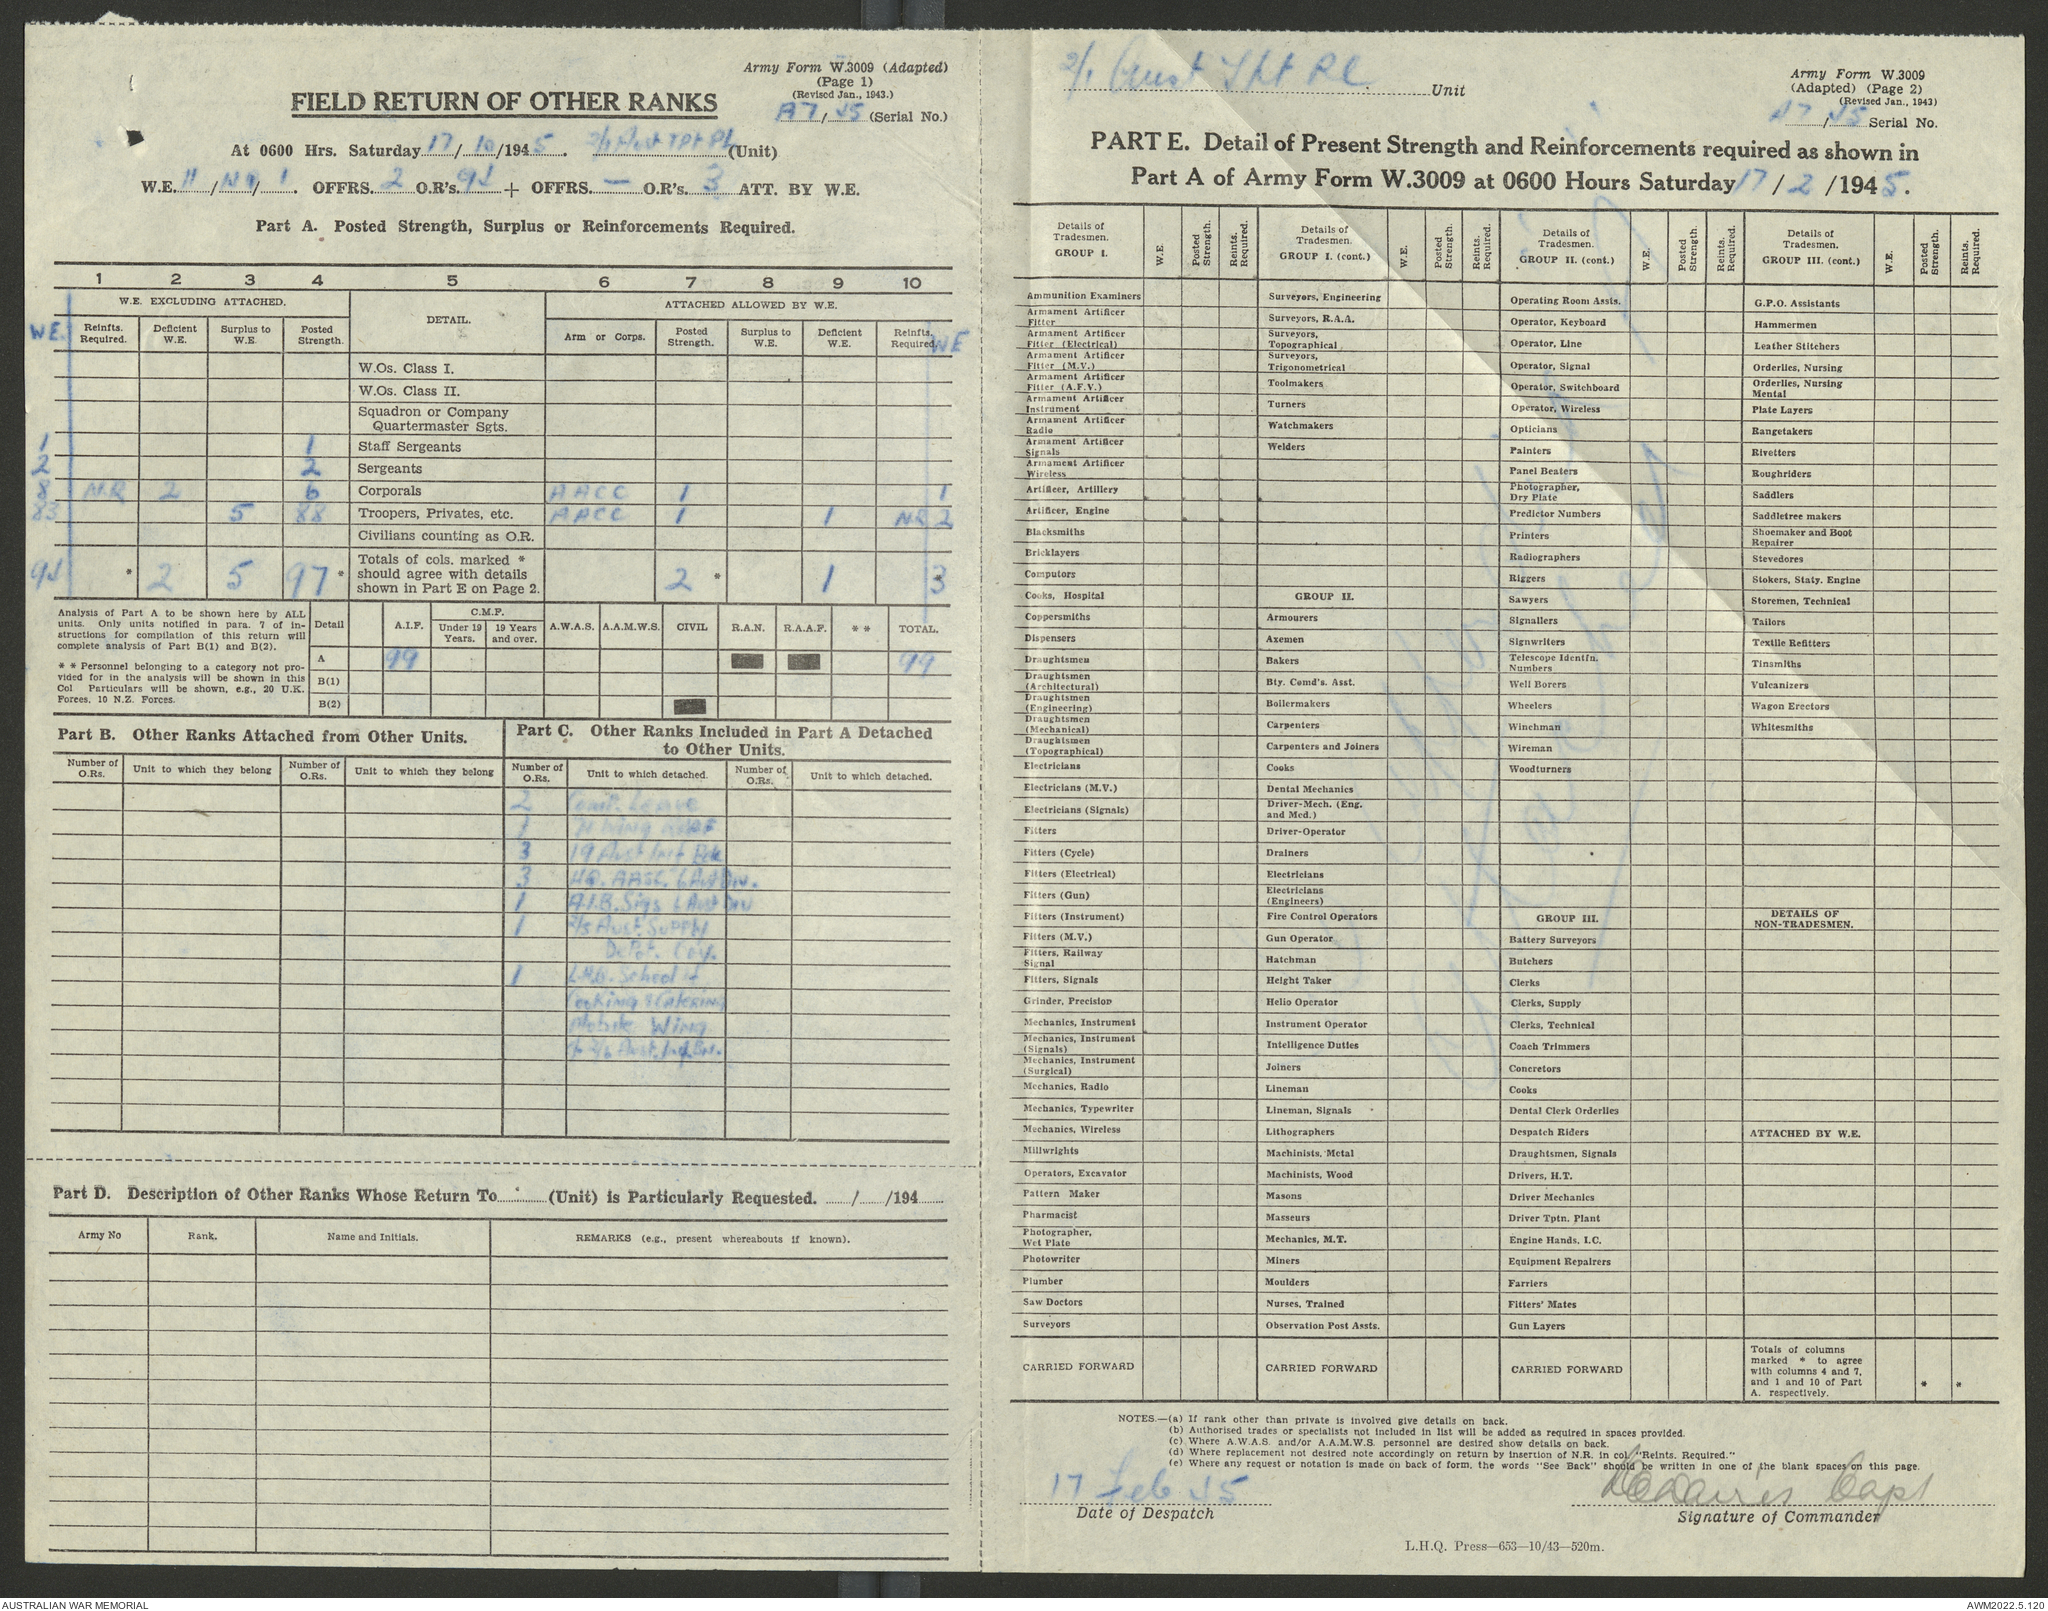 Army Form W.3009 (Adapted)
(Page 1)
(Revised Jan., 1943.)
FIELD RETURN OF OTHER RANKS
A7/45 (Serial No.)
At 0600 Hrs. Saturday 17/10/1945. 2/1 Aust Tpt Pl (Unit)
W.E. 11/ /1. OFFRS. 2 O.R's. 94 + OFFRS. — O.R's. 3 ATT. BY W.E.
Part A. Posted Strength, Surplus or Reinforcements Required.
1 2 3 4 5 6 7 8 9 10
W.E. EXCLUDING ATTACHED. DETAIL. ATTACHED ALLOWED BY W.E.
W.E. Reinfts. Required. Deficient W.E. Surplus to W.E. Posted Strength. Arm or Corps. Posted Strength. Surplus to W.E. Deficient W.E. Reinfts. Required. WE
W.Os. Class I.
W.Os. Class II.
Squadron or Company Quartermaster Sgts.
1 1 Staff Sergeants
2 2 Sergeants
8 N.R 2 6 Corporals AACC 1 1
83 5 88 Troopers, Privates, etc. AACC 1 1 NR 2
Civilians counting as O.R.
94 * 2 5 97 * Totals of cols. marked * should agree with details shown in Part E on Page 2. 2 * 1 * 3
Analysis of Part A to be shown here by ALL units. Only units notified in para. 7 of instructions for compilation of this return will complete analysis of Part B(1) and B(2).
* * Personnel belonging to a category not provided for in the analysis will be shown in this Col Particulars will be shown, e.g., 20 U.K. Forces, 10 N.Z. Forces.
Detail A.I.F. C.M.F. Under 19 Years. 19 Years and over. A.W.A.S. A.A.M.W.S. CIVIL R.A.N. R.A.A.F. * * TOTAL.
A 99 99
B(1)
B(2)
Part B. Other Ranks Attached from Other Units.
Number of O.Rs. Unit to which they belong Number of O.Rs. Unit to which they belong
Part C. Other Ranks Included in Part A Detached to Other Units.
Number of O.Rs. Unit to which detached. Number of O.Rs. Unit to which detached.
2 Comp. Leave
Wing RAAF
3 19 Aust Inf Bde
3 HQ. AASC. 6 Aust Div.
1 A.I.B. Sigs 6 Aust Div
1 2/5 Aust. Supply
Depot. Coy.
1 L.H.Q. School of
Cooking & Catering
Mobile Wing
2/6 Aust. Inf. Bn.
Part D. Description of Other Ranks Whose Return To (Unit) is Particularly Requested. / /194
Army No Rank. Name and Initials. REMARKS (e.g., present whereabouts if known).
2/1 Aust Tpt Pl. Unit
Army Form W.3009
(Adapted) (Page 2)
(Revised Jan., 1943)
A7/45 Serial No.
PART E. Detail of Present Strength and Reinforcements required as shown in
Part A of Army Form W.3009 at 0600 Hours Saturday 17/2/1945.
Details of Tradesmen. GROUP I. W.E. Posted Strength. Reints. Required.
Ammunition Examiners
Armament Artificer Fitter
Armament Artificer Fitter (Electrical)
Armament Artificer Fitter (M.V.)
Armament Artificer Fitter (A.F.V.)
Armament Artificer Instrument
Armament Artificer Radio
Armament Artificer Signals
Armament Artificer Wireless
Artificer, Artillery
Artificer, Engine
Blacksmiths
Bricklayers
Computors
Cooks, Hospital
Coppersmiths
Dispensers
Draughtsmen
Draughtsmen (Architectural)
Draughtsmen (Engineering)
Draughtsmen (Mechanical)
Draughtsmen (Topographical)
Electricians
Electricians (M.V.)
Electricians (Signals)
Fitters
Fitters (Cycle)
Fitters (Electrical)
Fitters (Gun)
Fitters (Instrument)
Fitters (M.V.)
Fitters, Railway Signal
Fitters, Signals
Grinder, Precision
Mechanics, Instrument
Mechanics, Instrument (Signals)
Mechanics, Instrument (Surgical)
Mechanics, Radio
Mechanics, Typewriter
Mechanics, Wireless
Millwrights
Operators, Excavator
Pattern Maker
Pharmacist
Photographer, Wet Plate
Photowriter
Plumber
Saw Doctors
Surveyors
CARRIED FORWARD
Details of Tradesmen. GROUP I. (cont.) W.E. Posted Strength. Reints. Required.
Surveyors, Engineering
Surveyors, R.A.A.
Surveyors, Topographical
Surveyors, Trigonometrical
Toolmakers
Turners
Watchmakers
Welders
GROUP II.
Armourers
Axemen
Bakers
Bty. Comd's. Asst.
Boilermakers
Carpenters
Carpenters and Joiners
Cooks
Dental Mechanics
Driver-Mech. (Eng. and Med.)
Driver-Operator
Drainers
Electricians
Electricians (Engineers)
Fire Control Operators
Gun Operator
Hatchman
Height Taker
Helio Operator
Instrument Operator
Intelligence Duties
Joiners
Lineman
Lineman, Signals
Lithographers
Machinists, Metal
Machinists, Wood
Masons
Masseurs
Mechanics, M.T.
Miners
Moulders
Nurses, Trained
Observation Post Assts.
CARRIED FORWARD
Details of Tradesmen. GROUP II. (cont.) W.E. Posted Strength. Reints. Required.
Operating Room Assts.
Operator, Keyboard
Operator, Line
Operator, Signal
Operator, Switchboard
Operator, Wireless
Opticians
Painters
Panel Beaters
Photographer, Dry Plate
Predictor Numbers
Printers
Radiographers
Riggers
Sawyers
Signallers
Signwriters
Telescope Identfn. Numbers
Well Borers
Wheelers
Winchman
Wireman
Woodturners
GROUP III.
Battery Surveyors
Butchers
Clerks
Clerks, Supply
Clerks, Technical
Coach Trimmers
Concretors
Cooks
Dental Clerk Orderlies
Despatch Riders
Draughtsmen, Signals
Drivers, H.T.
Driver Mechanics
Driver Tptn. Plant
Engine Hands, I.C.
Equipment Repairers
Farriers
Fitters' Mates
Gun Layers
CARRIED FORWARD
Details of Tradesmen. GROUP III. (cont.) W.E. Posted Strength. Reints. Required.
G.P.O. Assistants
Hammermen
Leather Stitchers
Orderlies, Nursing
Orderlies, Nursing Mental
Plate Layers
Rangetakers
Rivetters
Roughriders
Saddlers
Saddletree makers
Shoemaker and Boot Repairer
Stevedores
Stokers, Staty. Engine
Storemen, Technical
Tailors
Textile Refitters
Tinsmiths
Vulcanizers
Wagon Erectors
Whitesmiths
DETAILS OF NON-TRADESMEN.
ATTACHED BY W.E.
Totals of columns marked * to agree with columns 4 and 7, and 1 and 10 of Part A. respectively. * *
NOTES.—(a) If rank other than private is involved give details on back.
(b) Authorised trades or specialists not included in list will be added as required in spaces provided.
(c) Where A.W.A.S. and/or A.A.M.W.S. personnel are desired show details on back.
(d) Where replacement not desired note accordingly on return by insertion of N.R. in col. "Reints. Required."
(e) Where any request or notation is made on back of form, the words "See Back" should be written in one of the blank spaces on this page.
17 Feb 45
Date of Despatch
Capt
Signature of Commander
L.H.Q. Press—653—10/43—520m.
AUSTRALIAN WAR MEMORIAL
AWM2022.5.120